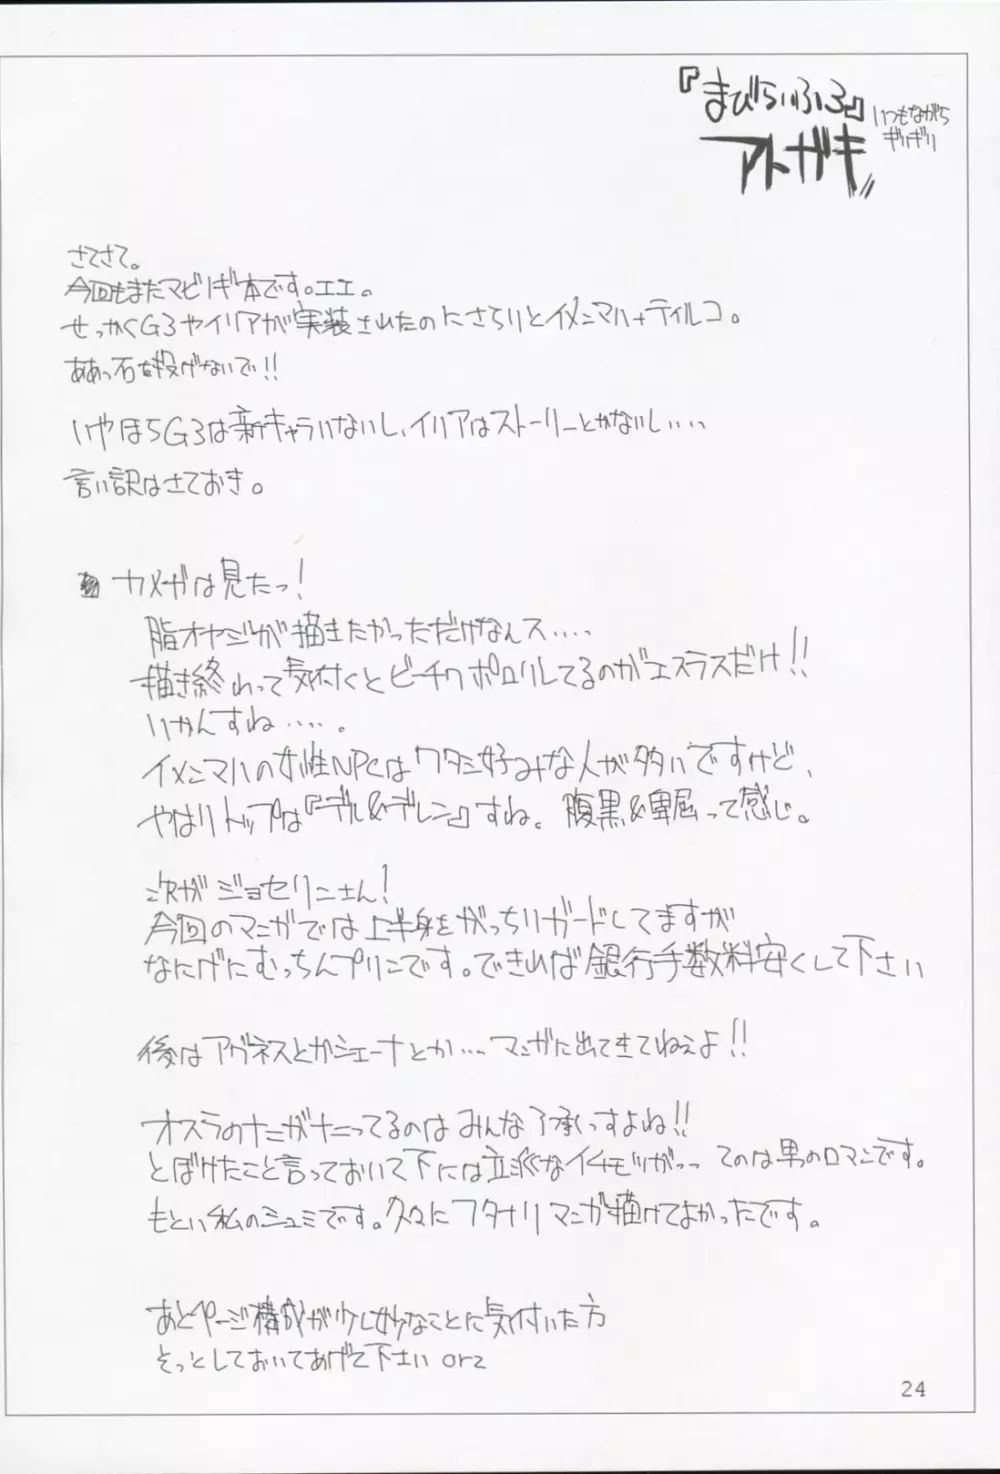 『まびらいふ3』
いつもながら
ギリギリ
アトガキ
さてさて。
今回もまたマビノギ本です。エエ。
せっかくG3やイリアが実装されたのにさらりとイメンマハ+ティルコ。
ああっ石を投げないで!!
いやほらG3は新キャラいないし、イリアはストーリーとかないし‥‥
言い訳はさておき。
カメガは見たっ!
脂オヤジが描きたかっただけなんス‥‥
描き終わって気付くとビーチクポロリしてるのがエスラスだけ!!
いかんすね‥‥。
イメンマハの女性NPCはワタシ好みな人が多いですけど、
やはりトップは『デル&デレン』すね。腹黒&卑屈って感じ。
次がジョセリンさん!
今回のマンガでは上半身をがっちりガードしてますが
なにげにむっちんプリンです。できれば銀行手数料安くして下さい
後はアグネスとかシェーナとか‥‥マンガに出てきてねぇよ!!
オスラのナニがナニってるのはみんな了承っすよね!!
とぼけたこと言っておいて下には立派なイチモツがっ てのは男のロマンです。
もとい私のシュミです。久々にフタナリマンガ描けてよかったです。
あとページ構成が少し妙なことに気付いた方
そっとしておいてあげて下さい orz
24